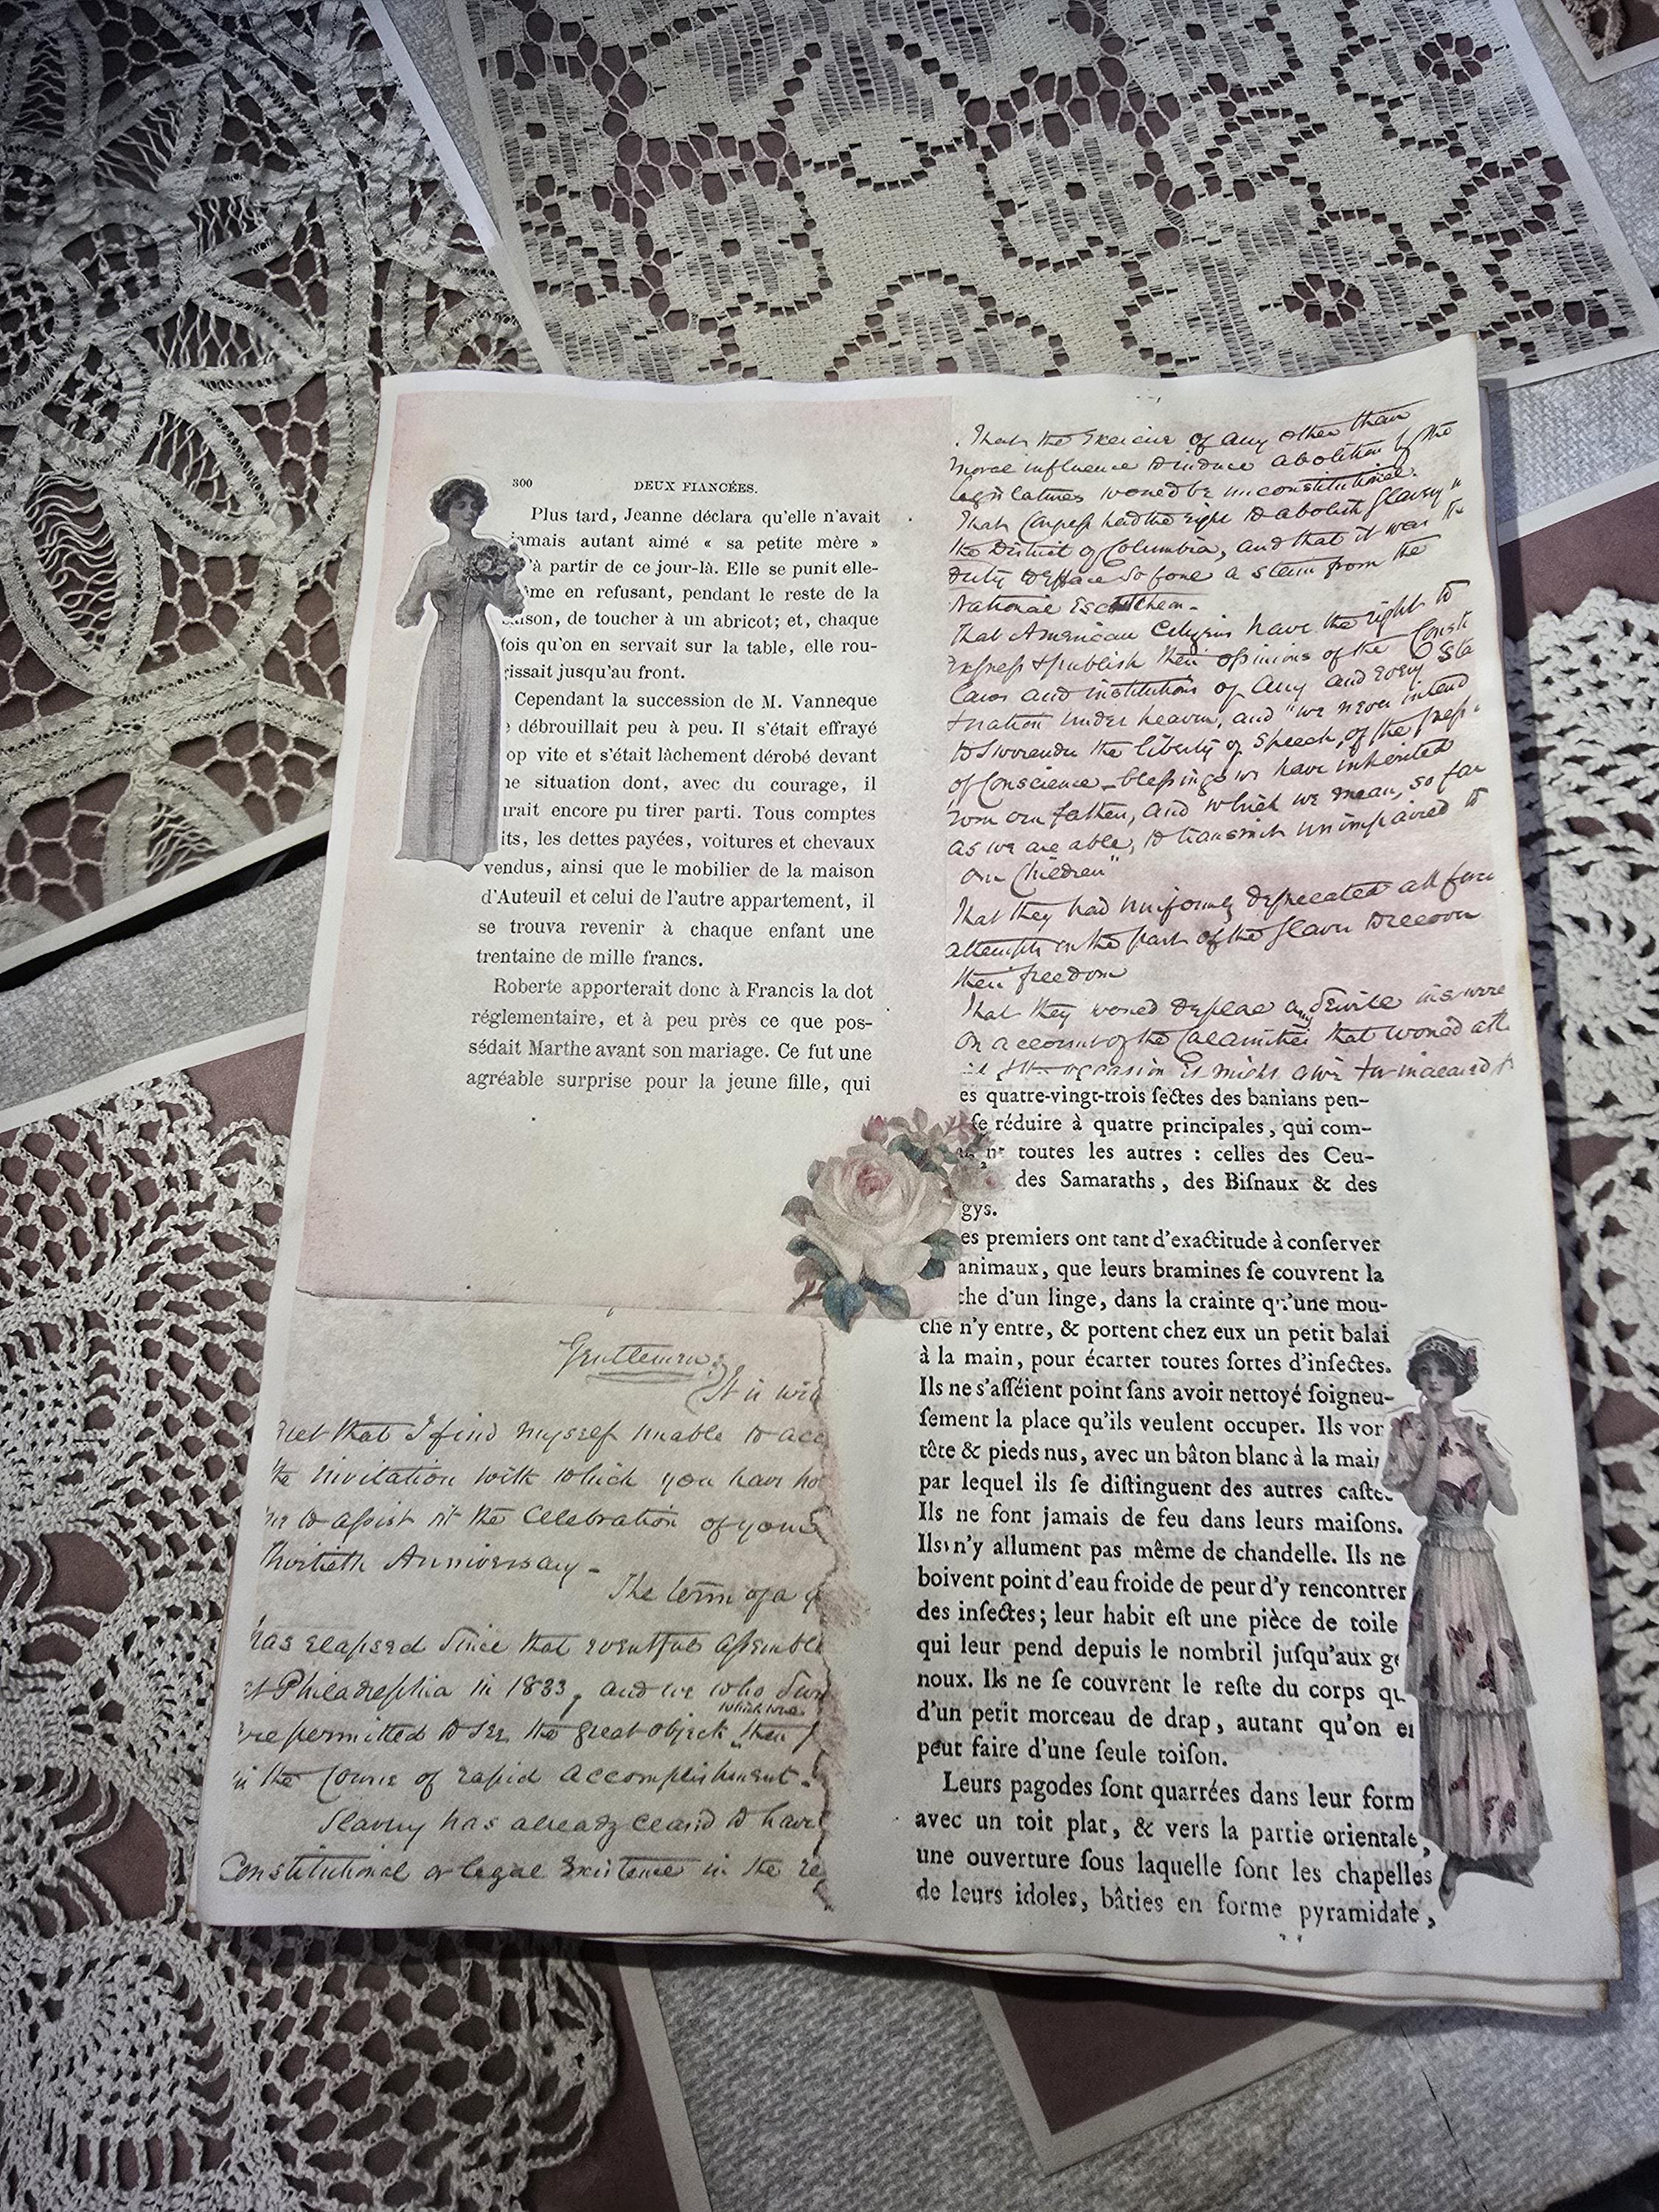 300 DEUX FIANCÉES.
Plus tard, Jeanne déclara qu'elle n'avait
jamais autant aimé « sa petite mère »
'à partir de ce jour-là. Elle se punit elle-
me en refusant, pendant le reste de la
ison, de toucher à un abricot; et, chaque
fois qu'on en servait sur la table, elle rou-
gissait jusqu'au front.
Cependant la succession de M. Vanneque
débrouillait peu à peu. Il s'était effrayé
op vite et s'était lâchement dérobé devant
ne situation dont, avec du courage, il
urait encore pu tirer parti. Tous comptes
its, les dettes payées, voitures et chevaux
vendus, ainsi que le mobilier de la maison
d'Auteuil et celui de l'autre appartement, il
se trouva revenir à chaque enfant une
trentaine de mille francs.
Roberte apporterait donc à Francis la dot
réglementaire, et à peu près ce que pos-
sédait Marthe avant son mariage. Ce fut une
agréable surprise pour la jeune fille, qui
Gentlemen:
It is with
that I find myself unable to acc
the invitation with which you have ho
me to assist at the Celebration of your
Thirtieth Anniversary -
The term of a g
has elapsed since that eventful assembl
at Philadelphia in 1833, and we who Surv
which was
are permitted to see the great object then
in the Course of rapid accomplishment.
Slavery has already ceased to have
Constitutional or legal Existence in the re
That the Exercise of any other than
moral influence to induce abolition by the
legislatures would be unconstitutional.
That Congress had the right to abolish Slavery in
the District of Columbia, and that it was the
duty to efface so foul a stain from the
National Escutcheon -
That American Citizens have the right to
express & publish their opinions of the Consti
Laws and institutions of any and every Sta
& nation under heaven, and "we never intend
to surrender the liberty of speech, of the press,
of Conscience - blessings we have inherited
from our fathers, and which we mean, so far
as we are able, to transmit unimpaired to
our Children"
That they had uniformly deprecated all forci
attempts on the part of the slaves to recover
their freedom
That they would deplore any Servile insurre
on account of the Calamities that would atte
occasion it might give to increased
es quatre-vingt-trois ſectes des banians peu-
ſe réduire à quatre principales, qui com-
nt toutes les autres : celles des Ceu-
des Samaraths, des Biſnaux & des
gys.
es premiers ont tant d'exactitude à conſerver
animaux, que leurs bramines ſe couvrent la
che d'un linge, dans la crainte qu'une mou-
che n'y entre, & portent chez eux un petit balai
à la main, pour écarter toutes ſortes d'inſectes.
Ils ne s'aſſéient point ſans avoir nettoyé ſoigneu-
ſement la place qu'ils veulent occuper. Ils vor
tête & pieds nus, avec un bâton blanc à la main
par lequel ils ſe diſtinguent des autres caſte
Ils ne font jamais de feu dans leurs maiſons.
Ils n'y allument pas même de chandelle. Ils ne
boivent point d'eau froide de peur d'y rencontrer
des inſectes; leur habit eſt une pièce de toile
qui leur pend depuis le nombril juſqu'aux ge
noux. Ils ne ſe couvrent le reſte du corps qu
d'un petit morceau de drap, autant qu'on en
peut faire d'une ſeule toiſon.
Leurs pagodes ſont quarrées dans leur form
avec un toit plat, & vers la partie orientale,
une ouverture ſous laquelle ſont les chapelles
de leurs idoles, bâties en forme pyramidale,